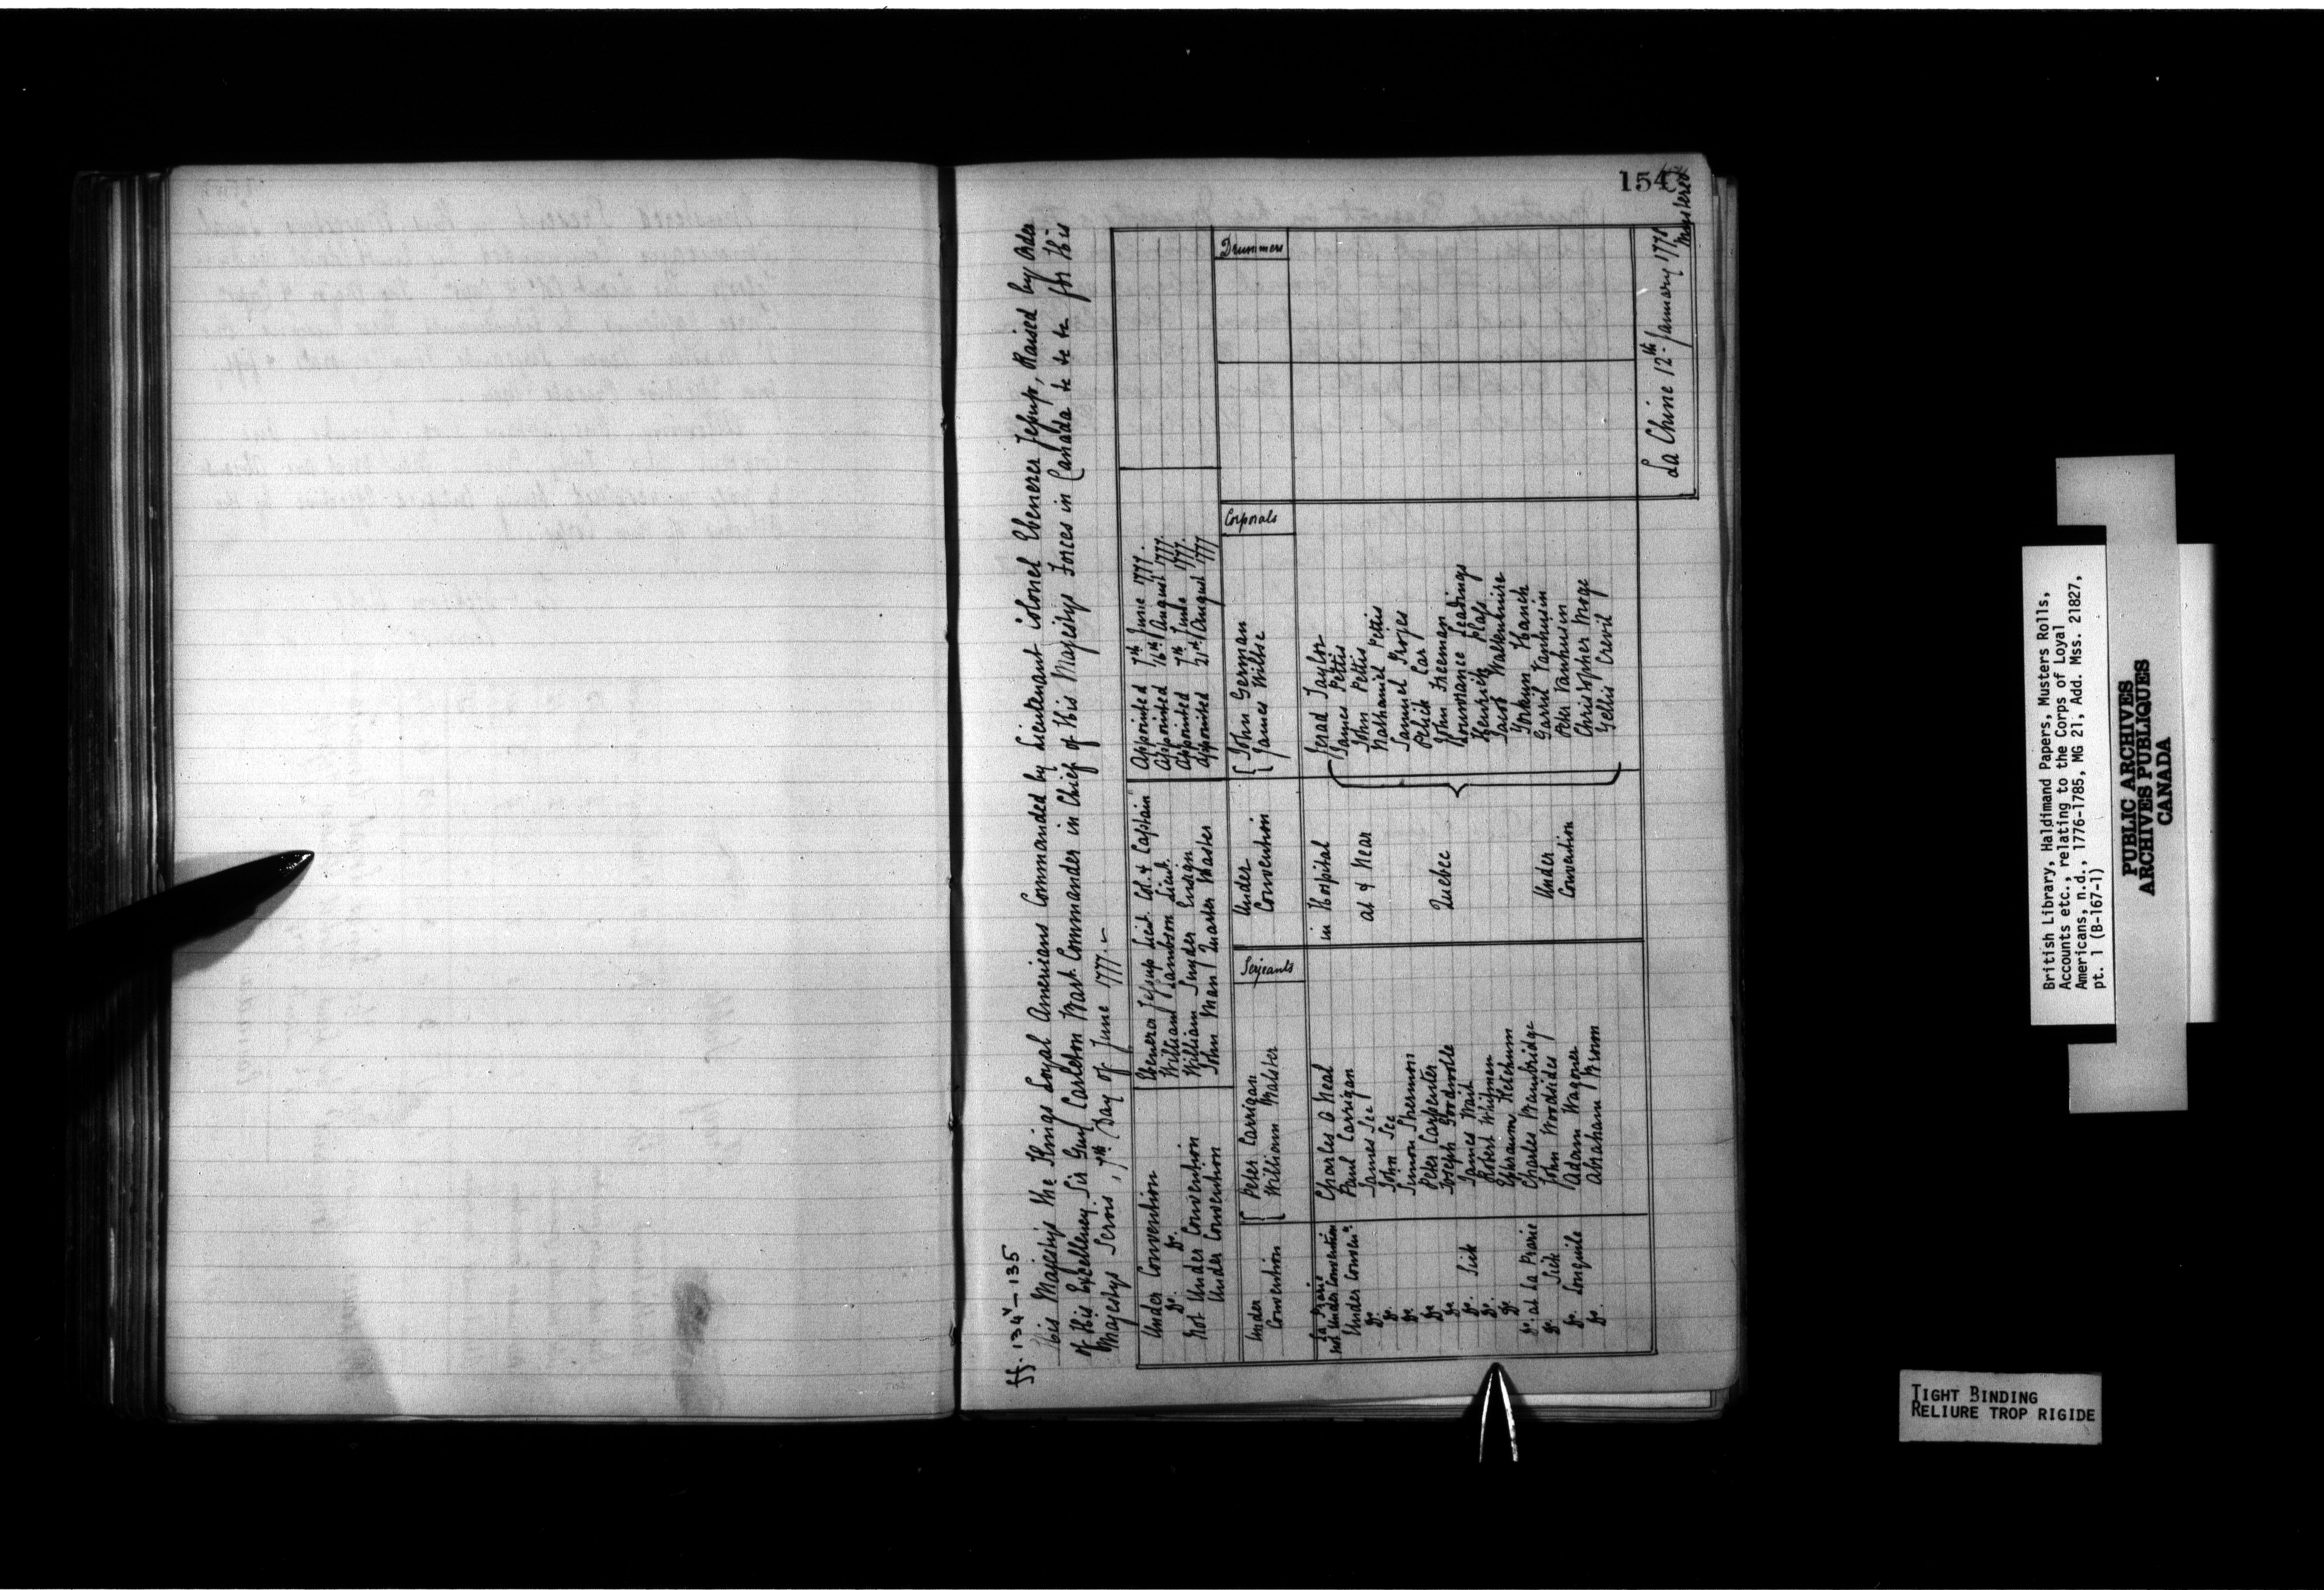 154
ff. 134v – 135
His Majestys the Kings Loyal Americans Commanded by Lieutenant Colonel Ebenezer Jessup, Raised by Order
of His Excellency Sir Guy Carleton Bart. Commander in Chief of His Majestys Forces in Canada &c &c &c for His
Majestys Servis, 7th Day of June 1777.
Under Convention Ebenezer Jessup Lieut. Col. & Captain Appointed 7th June 1777.
Do. Do. William Lambson Lieut. Appointed 16th August 1777.
Not Under Convention William Snyder Ensign Appointed 7th June 1777.
Under Convention John Man Quarter Master Appointed 21st August 1777
Serjeants Corporals Drummers
Under Peter Carrigan Under John German
Convention William Malster Convention James Wilse
La Prarie
not under Convention Charles O Neal in Hospital Jerad Taylor
Under Conven n. Paul Carrigan James Pettis
Do. James See at & Near John Pettis
Do. John See Nathaniel Pettis
Do Simon Shermon Samuel Proses
Do Peter Carpenter Pelick Car
Do Joseph Goodwoole Quebec John Freeman
Do. Sick James Wait Bowmance Leadings
Do. Robert Whitman Henrich Plass
Do Ephraum Ketchum Jacob Walkenhuire
Do. at La Prarie Charles Bembridge Yokum Hanick
Do. Sick John Woodsides Under Garrit Vanhusin
Do. Longuile Adam Wagoner Convention Peter Vanhusin
Do. Abraham Brown Christopher Moge
Gellis Crevil
La Chine 12th January 1778
Mustered
British Library, Haldimand Papers, Musters Rolls,
Accounts etc., relating to the Corps of Loyal
Americans, n.d., 1776-1785, MG 21, Add. Mss. 21827,
pt. 1 (B-167-1)
PUBLIC ARCHIVES
ARCHIVES PUBLIQUES
CANADA
TIGHT BINDING
RELIURE TROP RIGIDE